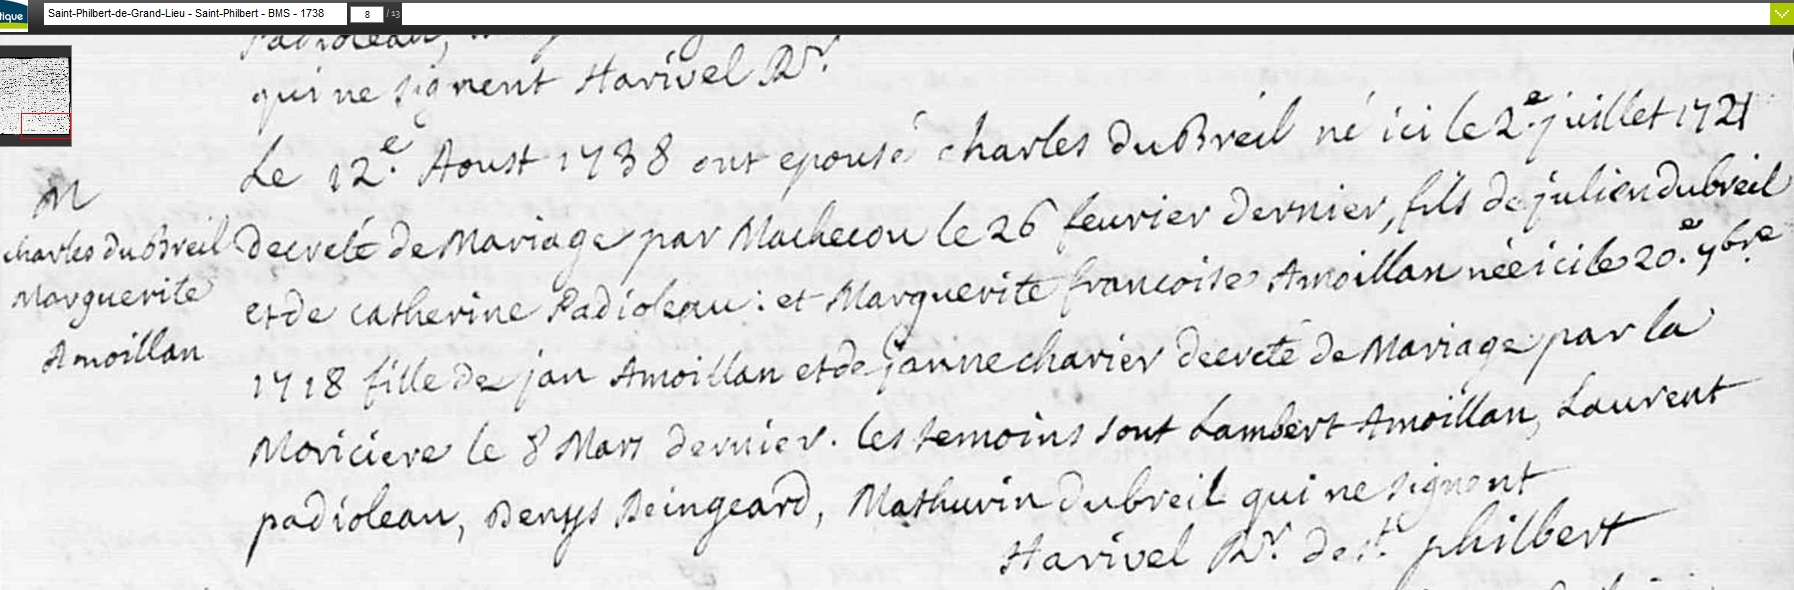 tique
Saint-Philbert-de-Grand-Lieu - Saint-Philbert - BMS - 1738
8 / 13
padioleau,
qui ne signent Harivel Rr.
Le 12.e Aoust 1738 ont epousé charles duBreil né ici le 2.e juillet 1721
M
charles duBreil
Marguerite
Amoillan
decreté de Mariage par Machecou le 26 feurier dernier, fils de julien dubreil
et de catherine Padioleau : et Marguerite francoise Amoillan née ici le 20.e 7bre
1718 fille de jan Amoillan et de janne charier decreté de Mariage par la
Moriciere le 8 Mars dernier. les temoins sont Lambert Amoillan, Laurent
padioleau, Denys Beingeard, Mathurin dubreil qui ne signent
Harivel Rr. de st. philbert